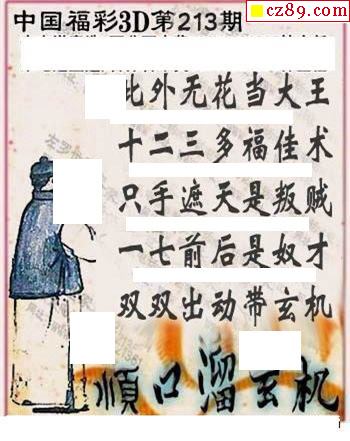 cz89.com
中国福彩3D第213期
此外无花当大王
十二三多福佳术
只手遮天是叛贼
一七前后是奴才
双双出动带玄机
順口溜玄机